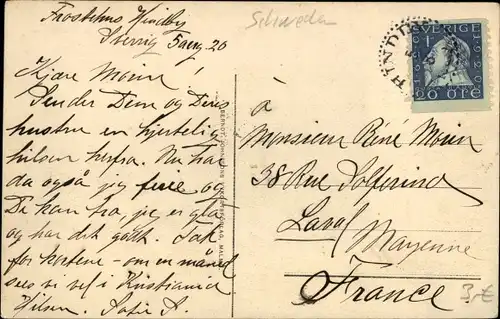 Schweden
Sverrig 5 aug. 20
Kjære Moin!
Sender Dem og Deres
hustru en hjertelig
hilsen herfra. Nu har
da også jeg ferie og
De kan tro, jeg er glad
og har det godt. Tak
for kortene – om en måned
sees vi vel i Kristiania
Hilsen.
SVERIGE
1920
60 ÖRE
à
Monsieur René Moin
38 Rue Solferino
Laval
Mayenne
France
3,-€